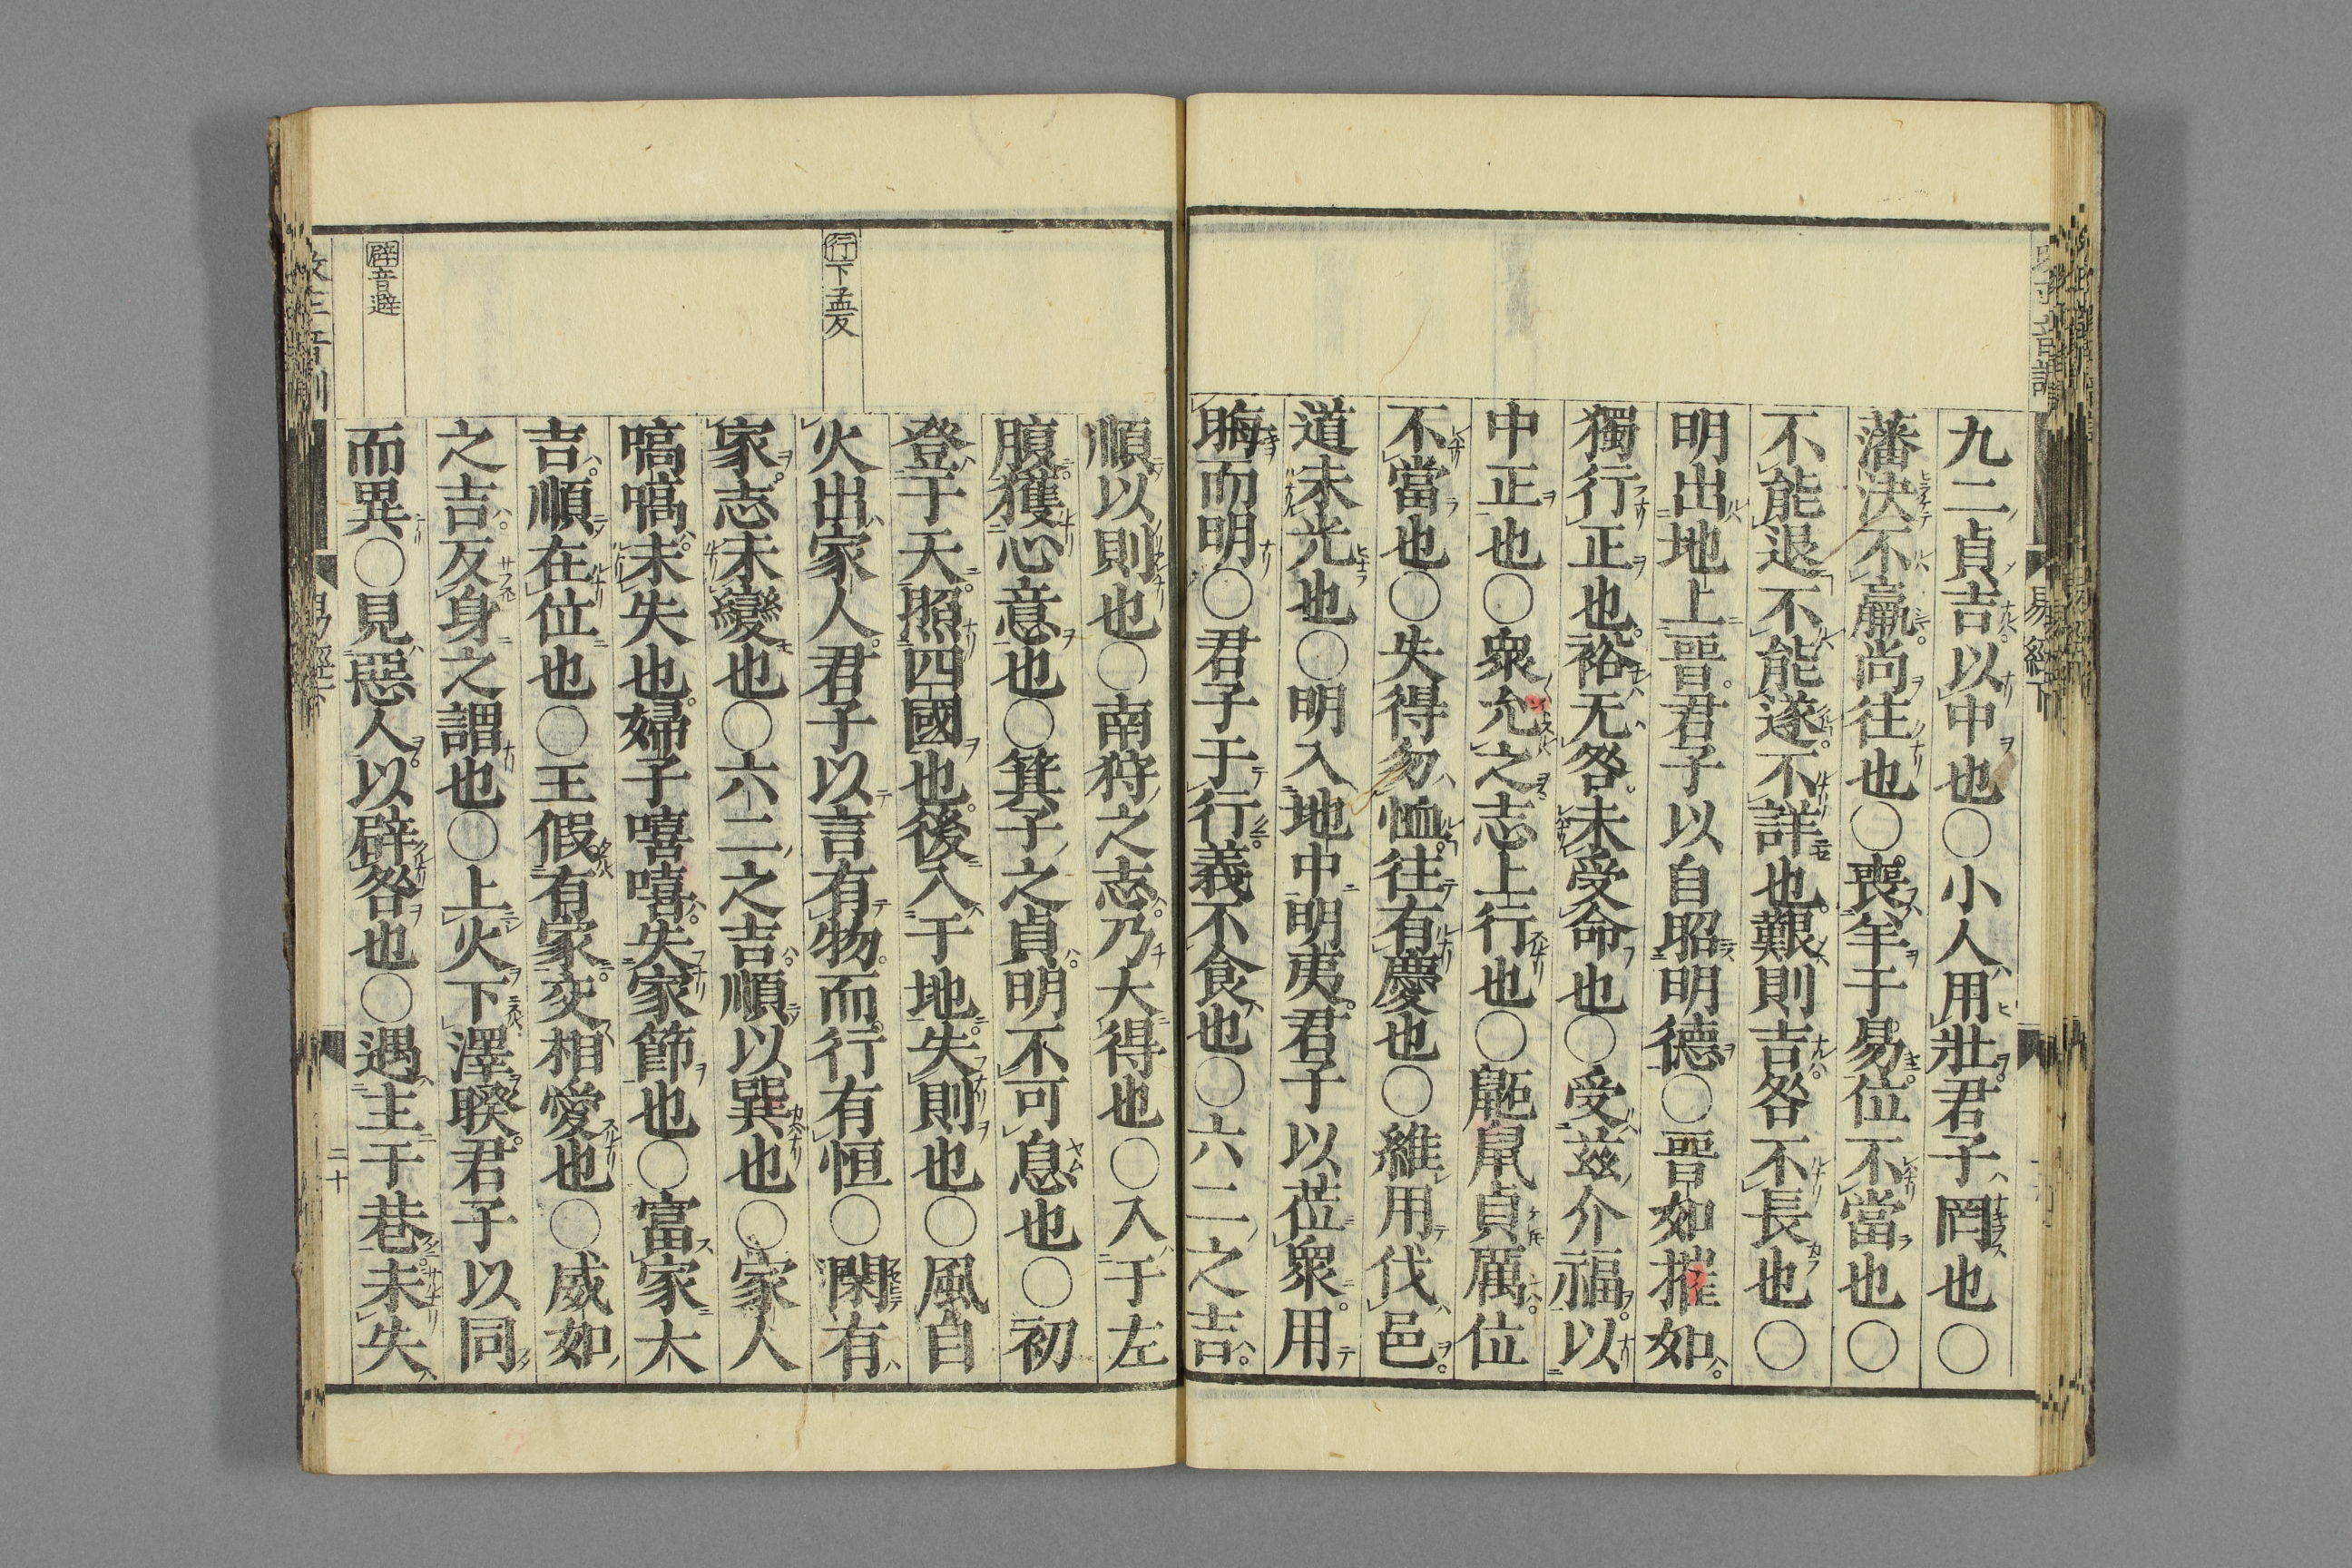 九二貞吉以中也○小人用壯君子罔也○
藩決不羸尚往也○喪羊于易位不當也○
不能退不能遂不詳也艱則吉咎不長也○
明出地上晋君子以自昭明德○晋如摧如
獨行正也裕无咎未受命也○受茲介福以
中正也○衆允之志上行也○鼫鼠貞厲位
不當也○失得勿恤往有慶也○維用伐邑
道未光也○明入地中明夷君子以莅衆用
晦而明○君子于行義不食也○六二之吉
順以則也○南狩之志乃大得也○入于左
腹獲心意也○箕子之貞明不可息也○初
登于天照四國也後入于地失則也○風自
行下孟反
火出家人君子以言有物而行有恒○閑有
家志未變也○六二之吉順以巽也○家人
嗃嗃未失也婦子嘻嘻失家節也○富家大
吉順在位也○王假有家交相愛也○威如
之吉反身之謂也○上火下澤睽君子以同
辟音避
而異○見惡人以辟咎也○遇主于巷未失
二十